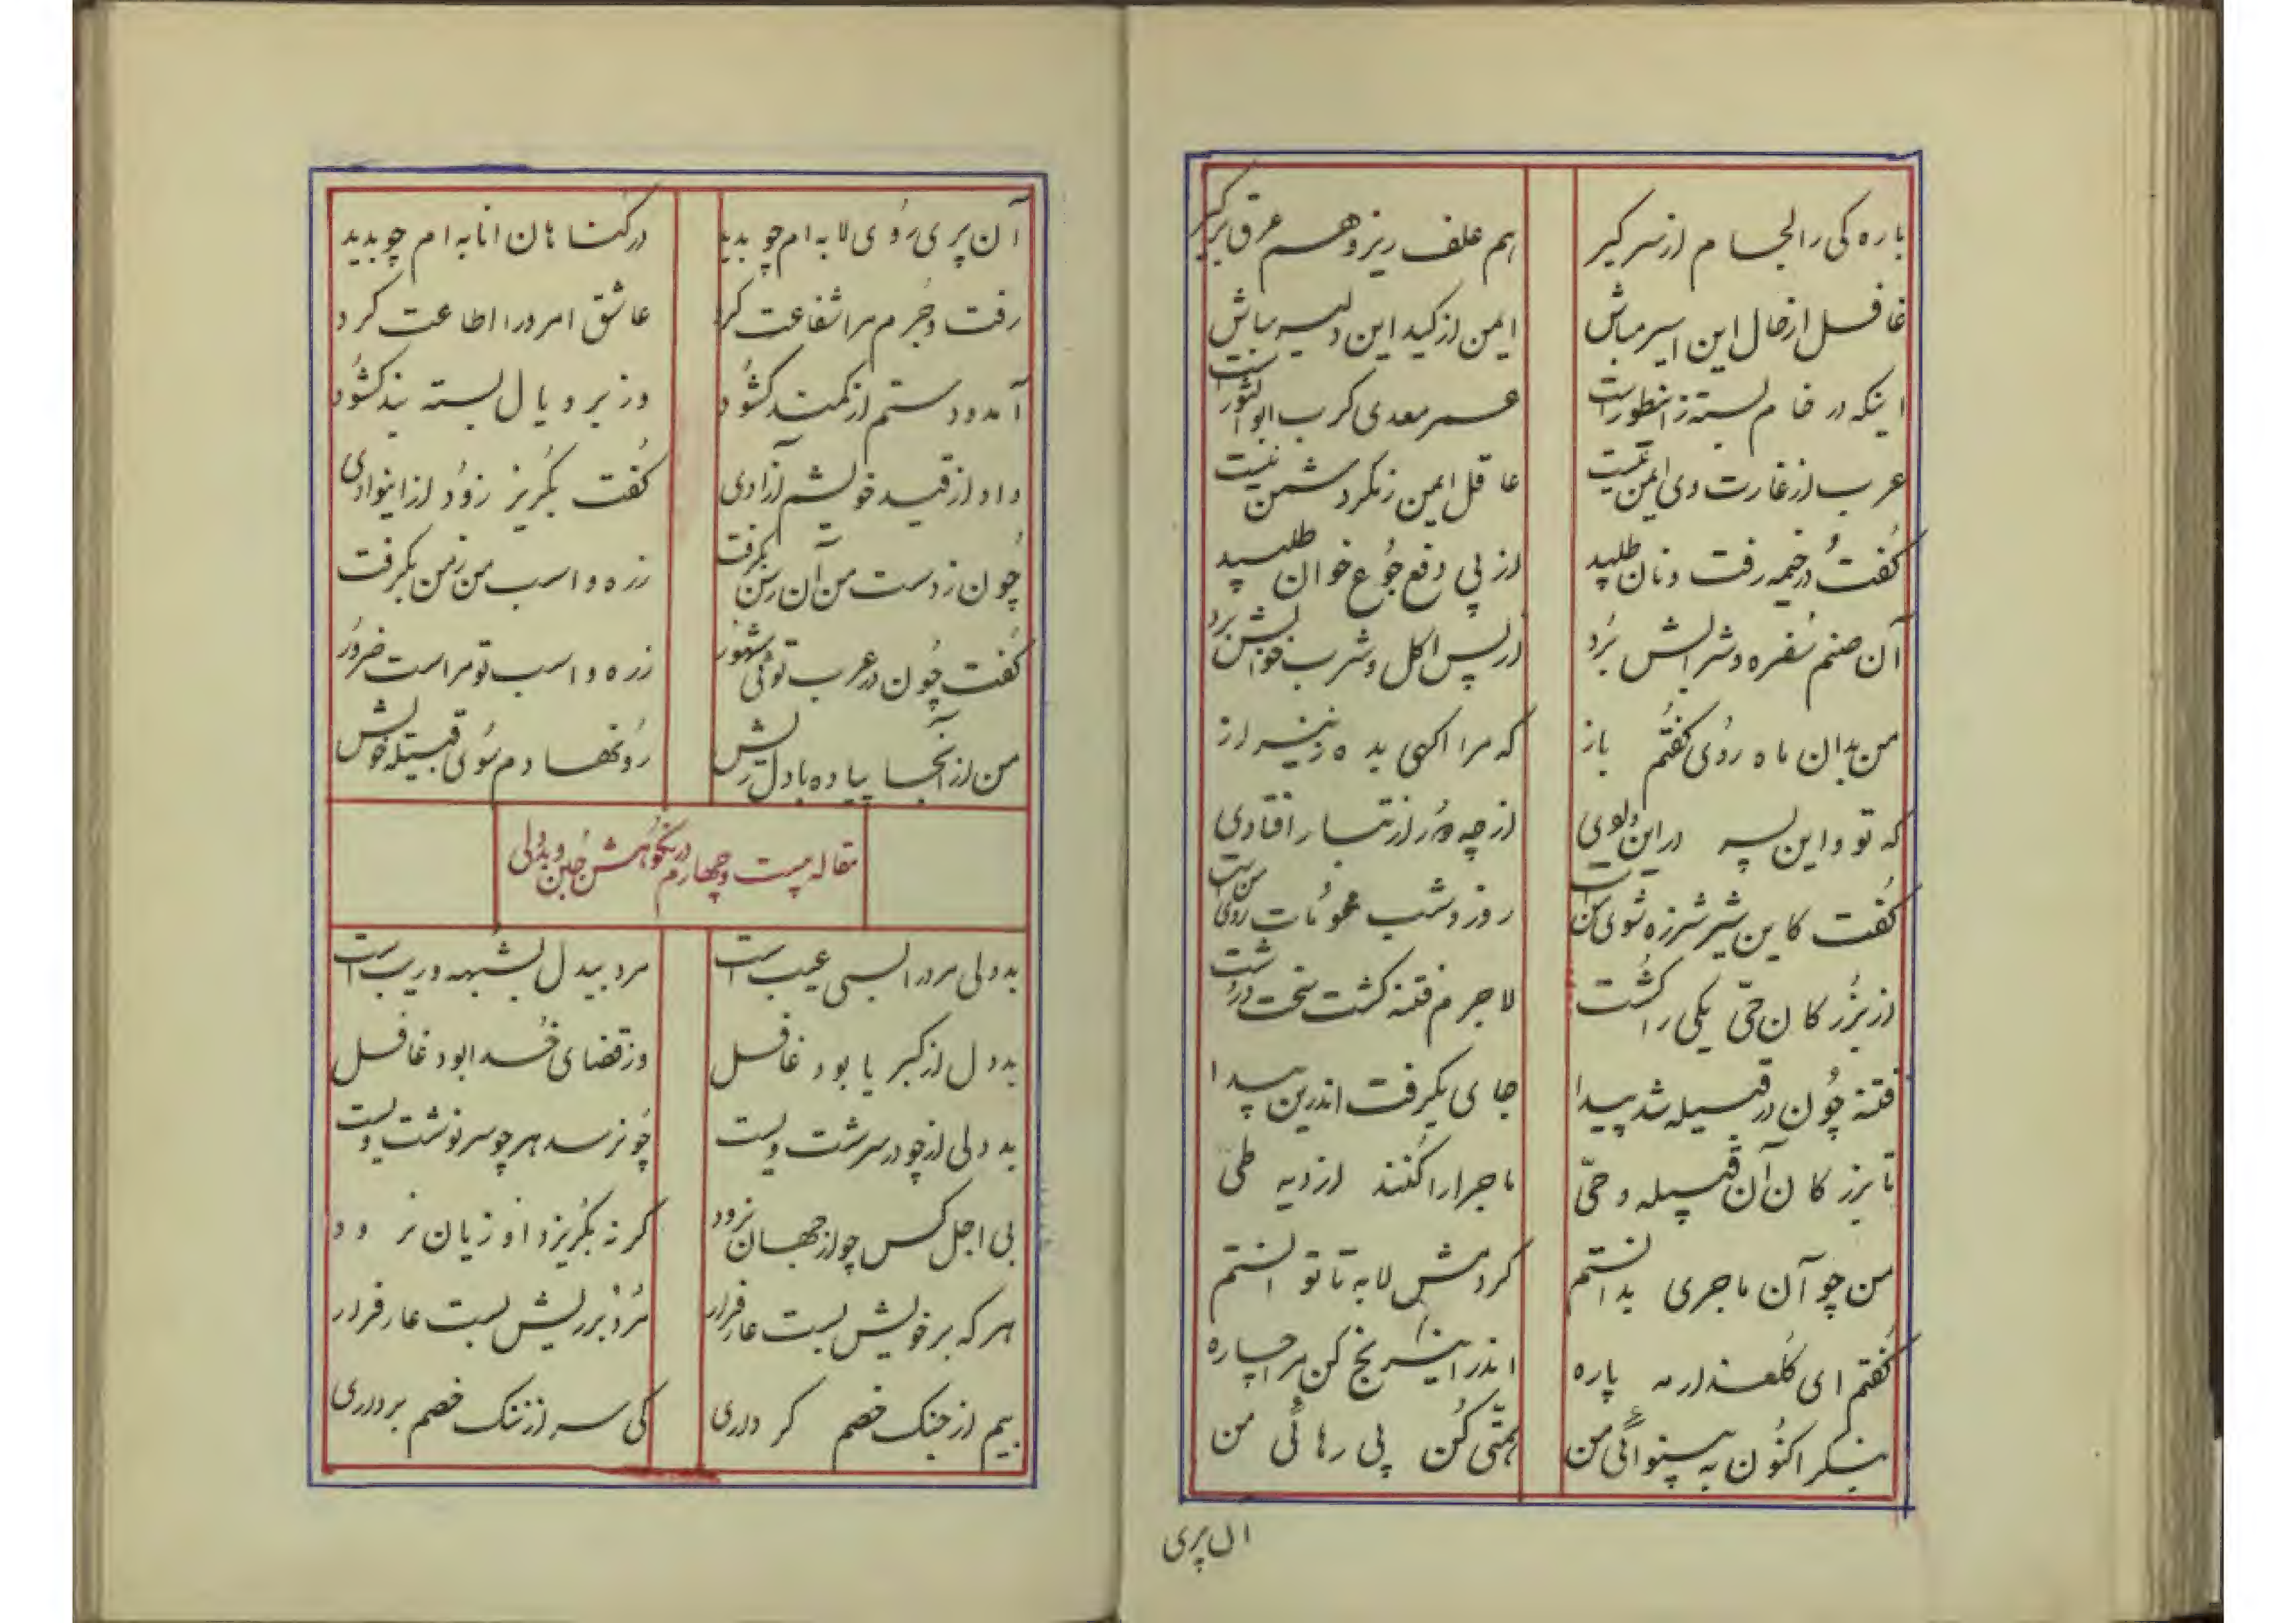 باره کی را لجام از سر گیر هم علف ریز و هم عرق برگیر
غافل از حال این اسیر مباش ایمن از کید این دلیر مباش
اینکه در خام بسته ز انطور است عمر معدی کرب ابو الثور است
عرب از غارت وی ایمن نیست عاقل ایمن ز مکر دشمن نیست
گفت و در خیمه رفت و نان طلبید از پی دفع جوع خوان طلبید
آن صنم سفره و شرابش برد از پس اکل و شرب خوابش برد
من بدان ماه روی گفتم باز که مرا آگهی بده زین راز
که تو و این پسر در این وادی از چه دور از تبار افتادی
گفت کاین شیر شرزه شوی من است روز و شب محو روی من است
از بزرگان حیّ یکی را کشت لاجرم فتنه گشت سخت درشت
فتنه چون در قبیله شد پیدا جای بگرفت اندرین بیدا
تا بزرگان آن قبیله و حیّ ماجرا را کنند از دیه طی
من چو آن ماجری بدانستم کردمش لابه تا توانستم
گفتم ای گلعذار مه پاره اندر این رنج کن مرا چاره
بنگر اکنون به بینوائی من همّتی کن پی رهائی من
آن پری
آن پری روی لابه ام چو بدید در گناهان انابه ام چو بدید
رفت و جرم مرا شفاعت کرد عاشق امر ورا اطاعت کرد
آمد و دستم از کمند گشود وز بر و یال بسته بند گشود
داد از قید خویشم آزادی گفت بگریز زود از این وادی
چون ز دست من آن رسن بگرفت زره و اسب من ز من بگرفت
گفت چون در عرب توئی مشهور زره و اسب تو مراست ضرور
من از آنجا پیاده با دل ریش رو نهادم سوی قبیله خویش
مقاله بیست و چهارم در نکوهش جبن و بددلی
بددلی مرد را بسی عیب است مرد بیدل بشبهه و ریب است
بددل از کبریا بود غافل وز قضای خدا بود غافل
بددلی از چو در سرشت ویست چو نرسد هر چو سرنوشت ویست
بی اجل کس چو از جهان نرود گر نه بگریزد او زیان نرود
هر که بر خویش بست عار فرار مرد بر ریش بست عار فرار
بیم از جنگ خصم گر داری کی سر از ننگ خصم برداری